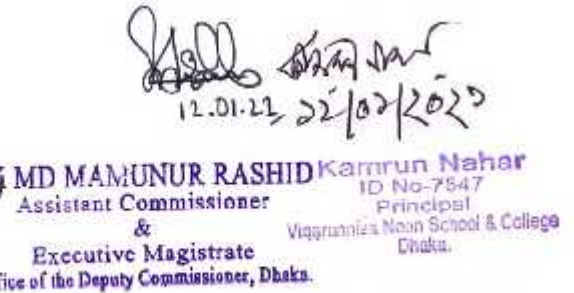 12.01.22
MD MAMUNUR RASHID
Assistant Commissioner
&
Executive Magistrate
fice of the Deputy Commissioner, Dhaka.
Kamrun Nahar
ID No-7547
Principal
Viqarunnisa Noon School & College
Dhaka.